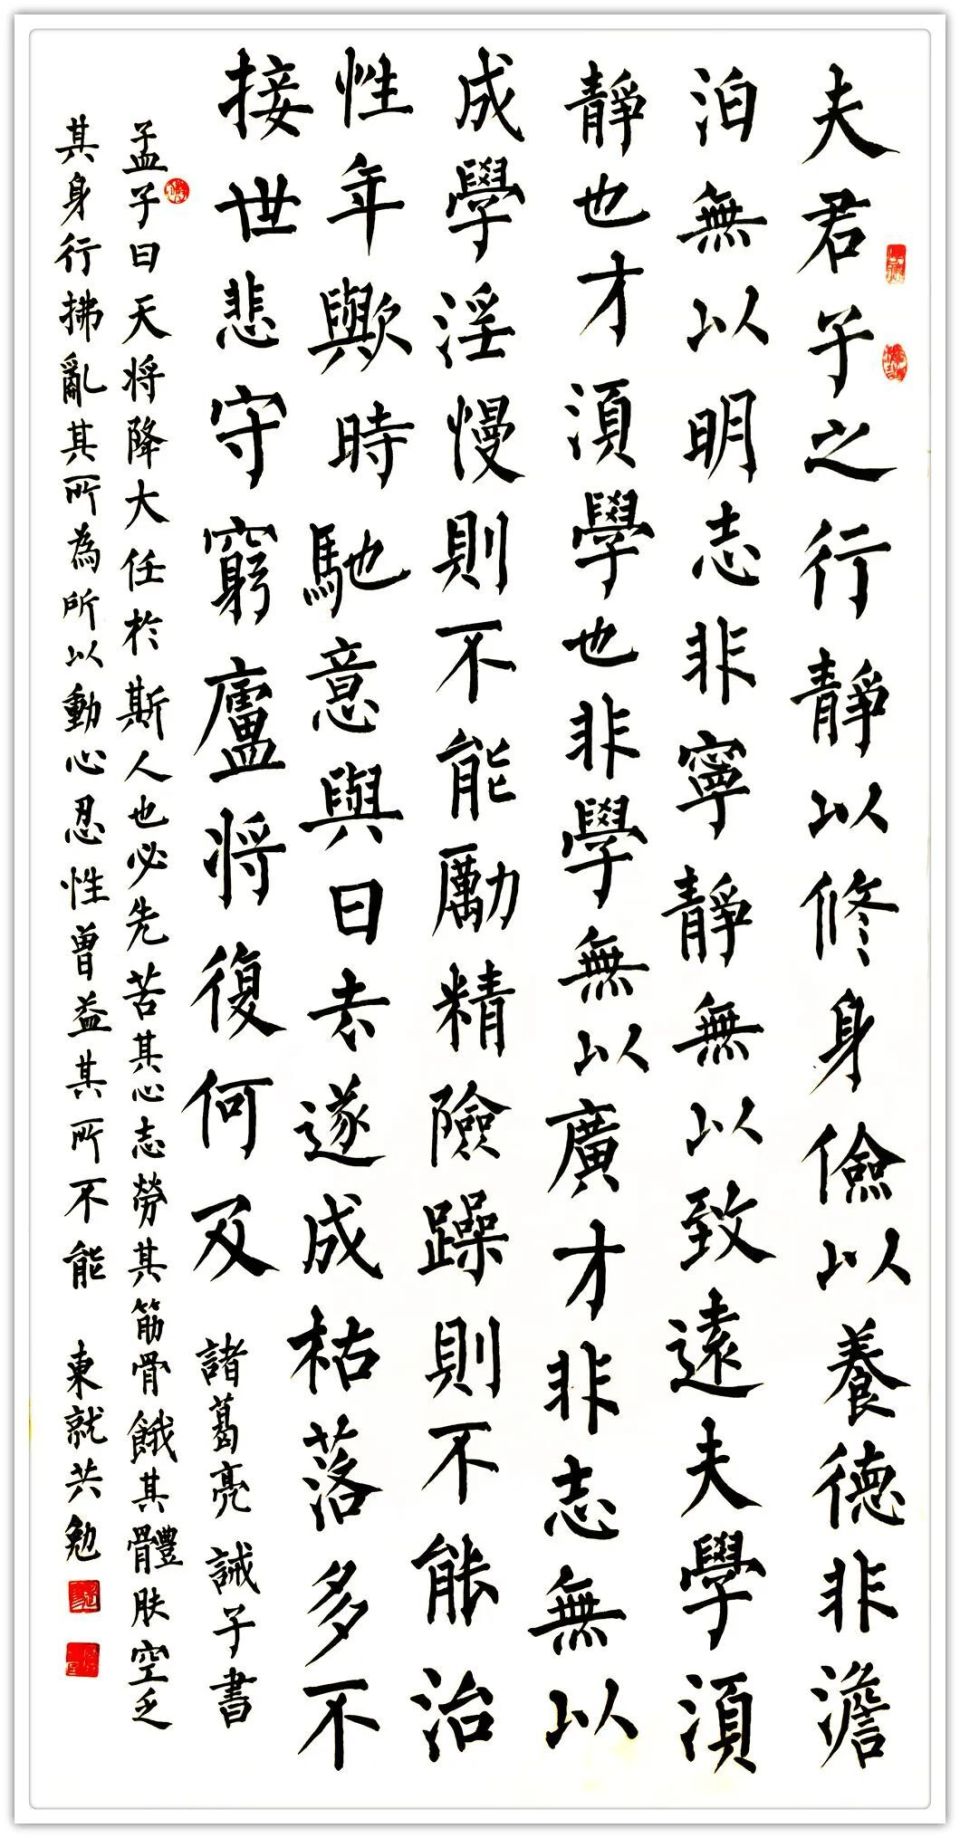 夫君子之行靜以修身儉以養德非澹
泊無以明志非寧靜無以致遠夫學湏
靜也才湏學也非學無以廣才非志無以
成學淫慢則不能勵精險躁則不能治
性年歟時馳意與日去遂成枯落多不
接世悲守窮廬将復何及 諸葛亮 誡子書
孟子曰天将降大任於斯人也必先苦其心志勞其筋骨餓其體肤空乏
其身行拂亂其所為所以動心忍性曾益其所不能 東就共勉